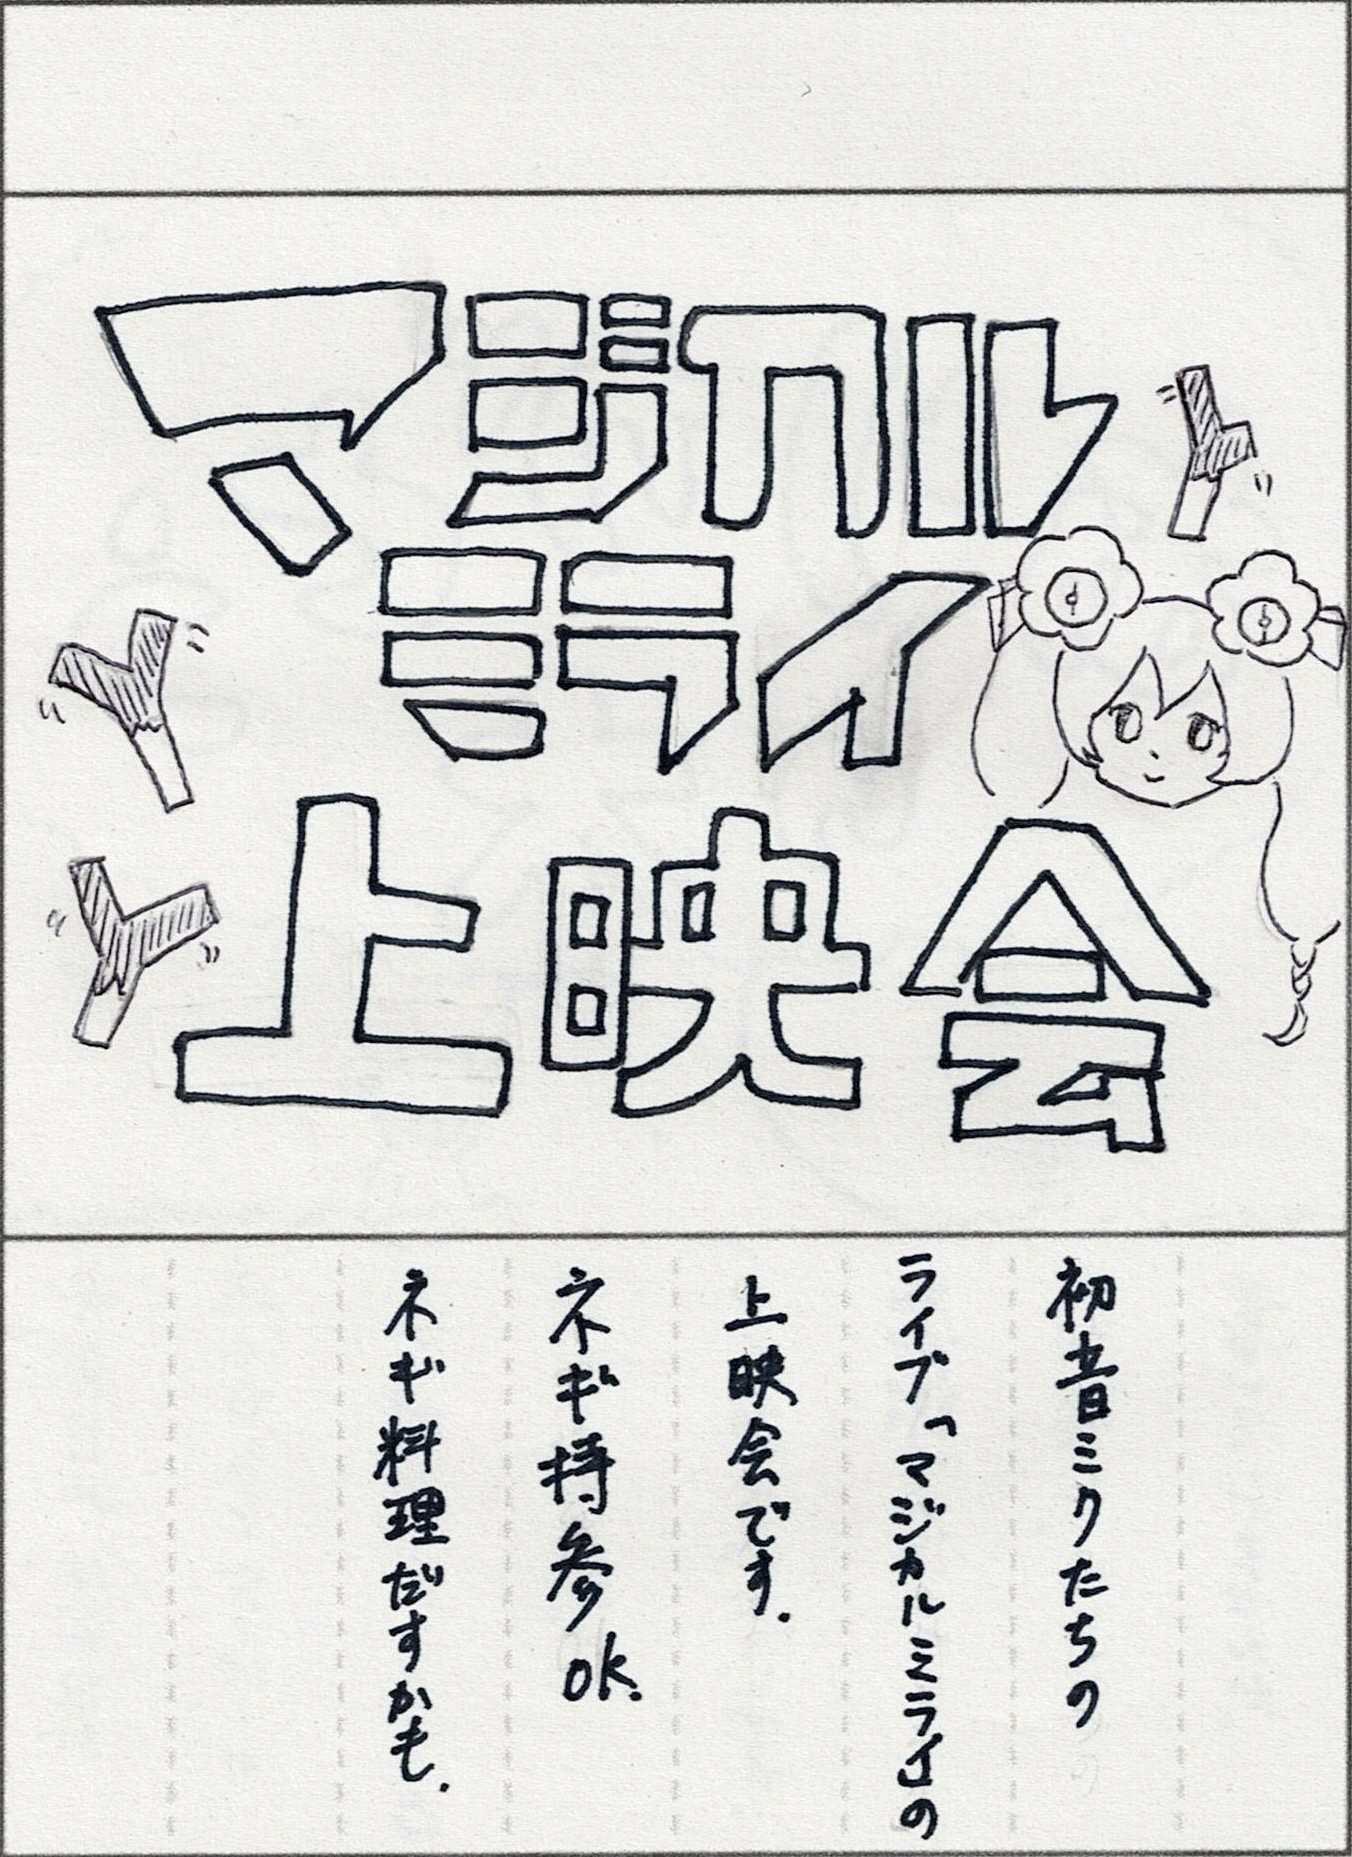 マジカル
ミライ
上映会
初音ミクたちの
ライブ「マジカルミライ」の
上映会です.
ネギ持参
OK.
ネギ料理だすかも.